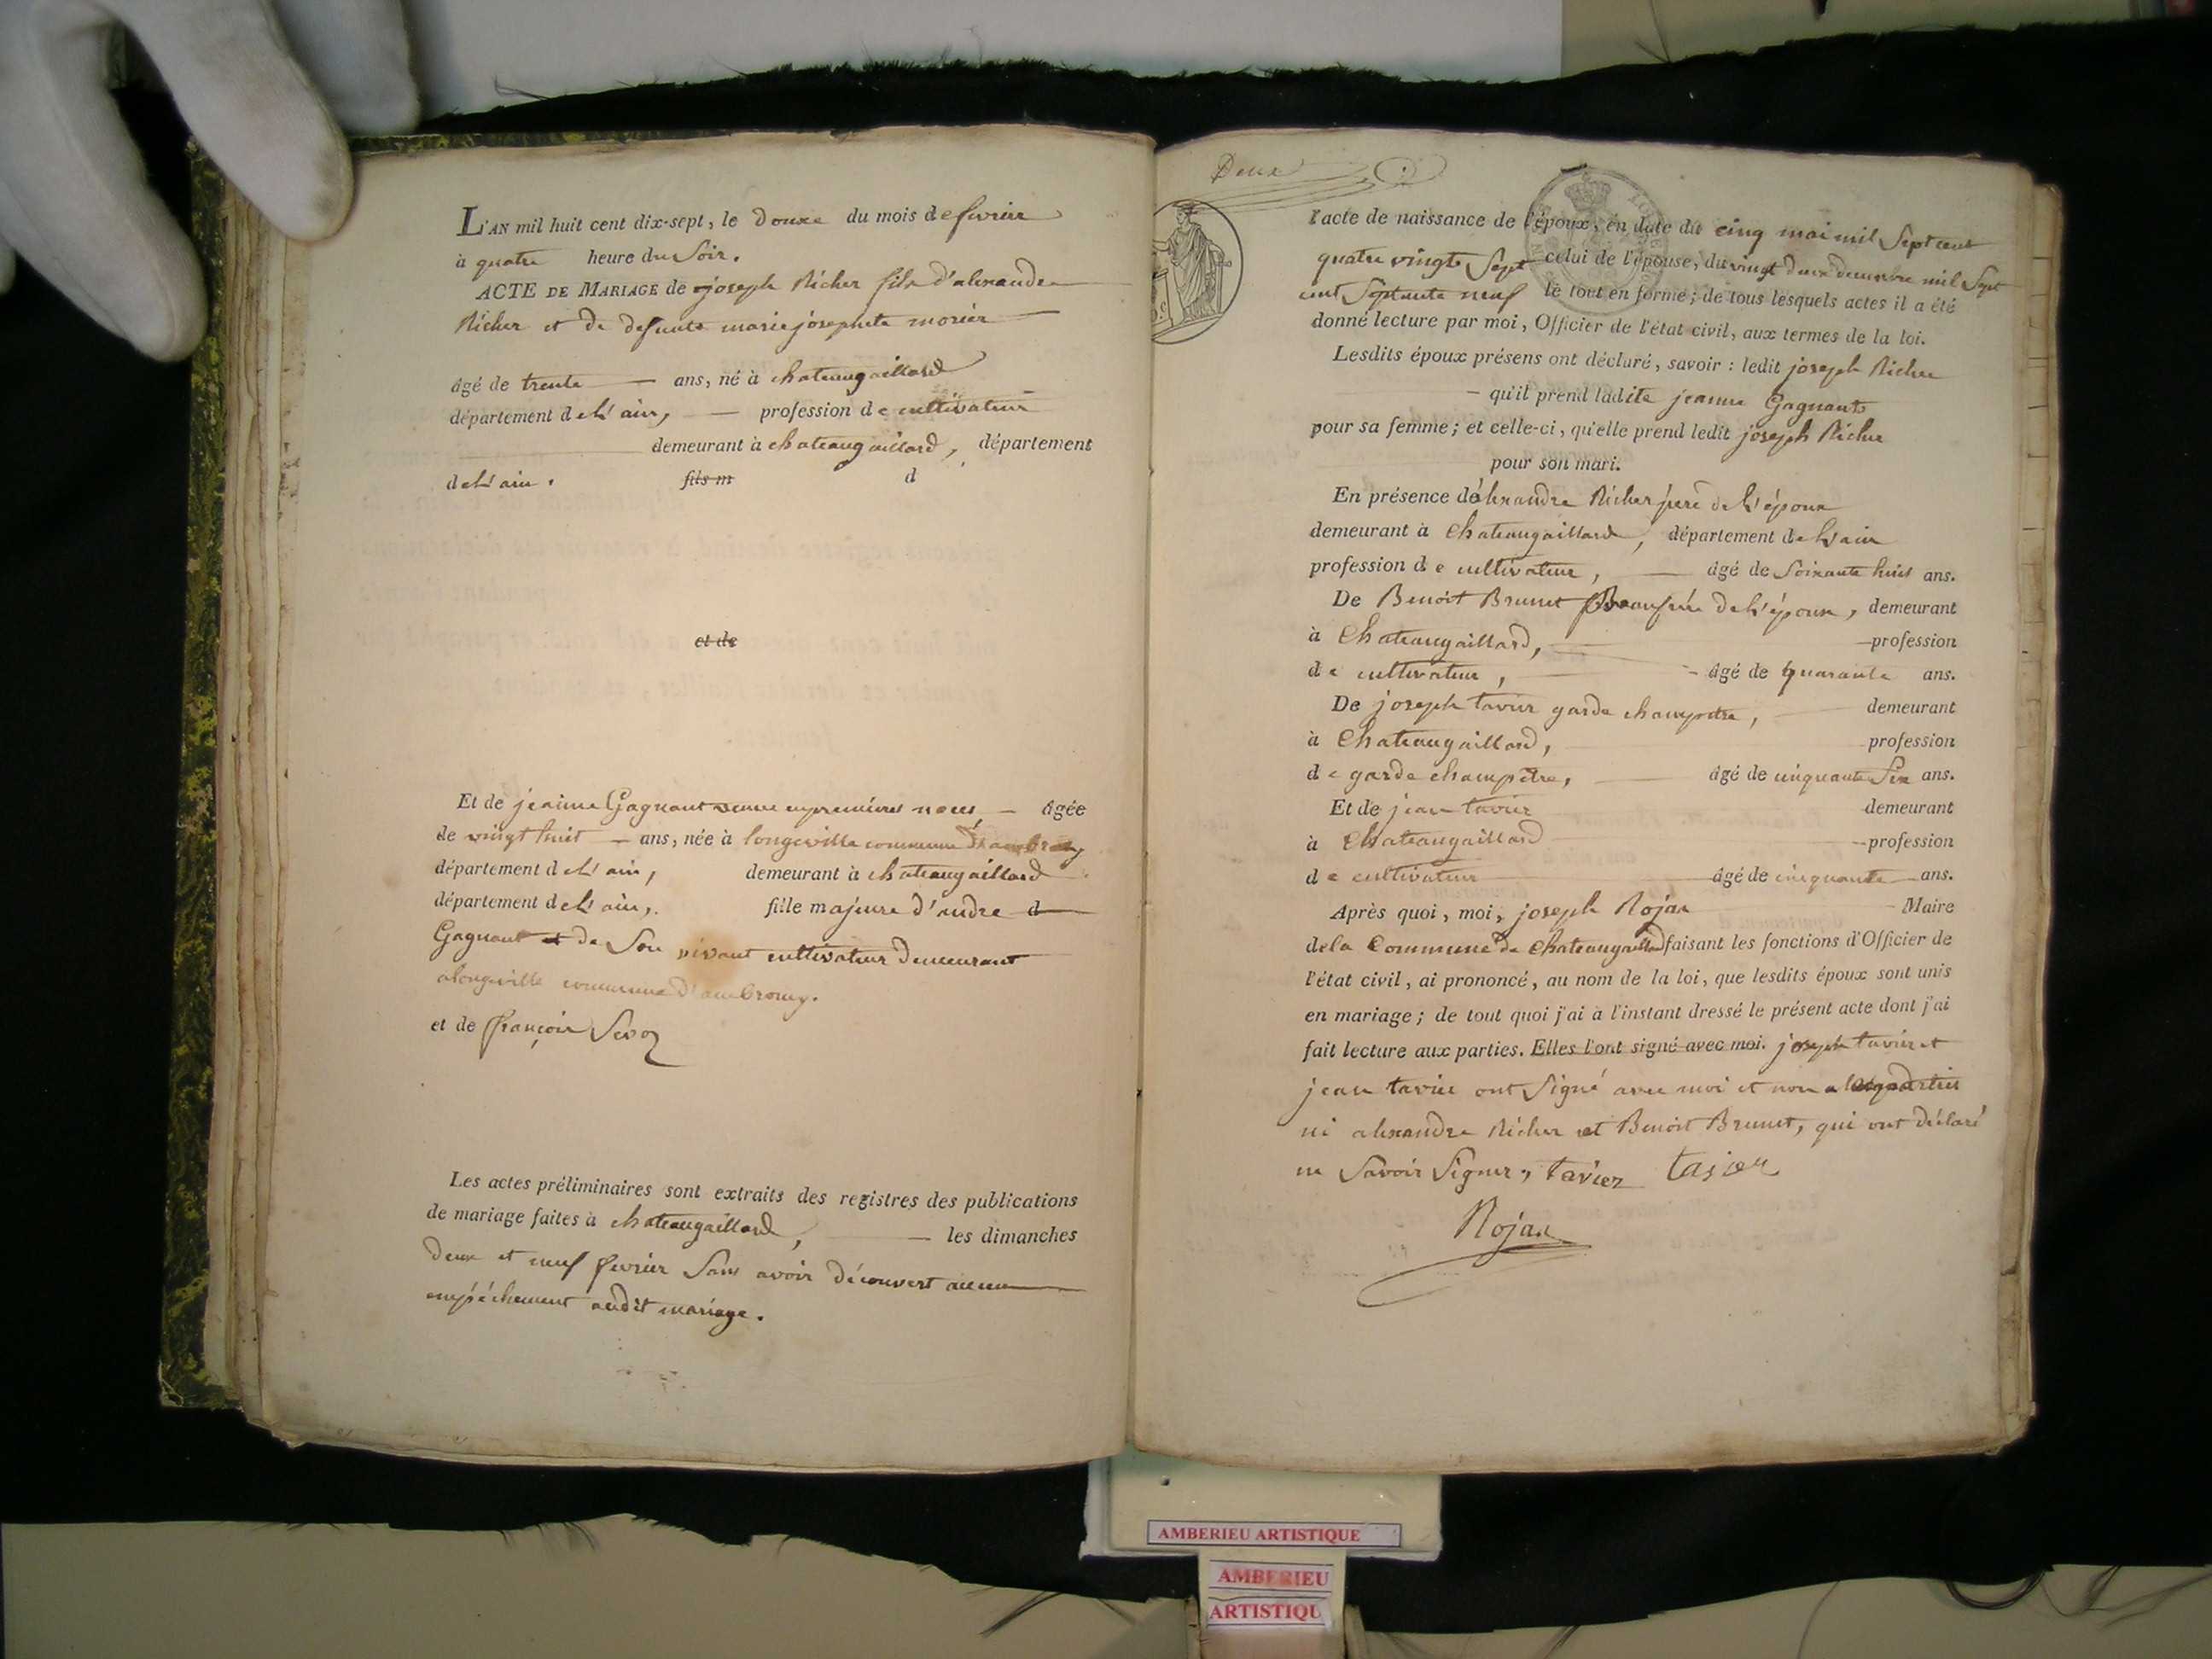 L'AN mil huit cent dix-sept, le douze du mois de fevrier
à quatre heure du Soir.
ACTE DE MARIAGE de joseph Richer fils d'alexandre
Richer et de defunte marie josephete morier
âgé de trente ans, né à chateaugaillard
département de L'ain, profession de cultivateur
demeurant à chateaugaillard, département
de L'ain. fils m d
et de
Et de jeanne Gagnant veuve en premières noces âgée
de vingt huit ans, née à longeville commune d'ambrony
département de L'ain, demeurant à chateaugaillard
département de L'ain, fille majeure d'andre d
Gagnant et de Son vivant cultivateur demeurant
alongeville commune d'ambrony.
et de françoise Sevoz
Les actes préliminaires sont extraits des registres des publications
de mariage faites à chateaugaillard, les dimanches
deux et neuf fevrier Sans avoir découvert aucun
empéchement audit mariage.
Deux
l'acte de naissance de l'époux, en date du cinq mai mil Sept cent
quatre vingt Sept celui de l'épouse, du vingt deux decembre mil Sept
cent Septante neuf le tout en forme; de tous lesquels actes il a été
donné lecture par moi, Officier de l'état civil, aux termes de la loi.
Lesdits époux présens ont déclaré, savoir: ledit joseph Richer
qu'il prend ladite jeanne Gagnant
pour sa femme; et celle-ci, qu'elle prend ledit joseph Richer
pour son mari.
En présence d'alexandre Richer père de L'époux
demeurant à Chateaugaillard, département de L'ain
profession de cultivateur, âgé de Soixante huit ans.
De Benoit Brunet Beaufrère de L'époux, demeurant
à Chateaugaillard, profession
de cultivateur, âgé de quarante ans.
De joseph tavier garde champetre, demeurant
à Chateaugaillard, profession
de garde champêtre, âgé de cinquante Six ans.
Et de jean tavier demeurant
à Chateaugaillard profession
de cultivateur âgé de cinquante ans.
Après quoi, moi, joseph Rojas Maire
de la Commune de Chateaugaillard faisant les fonctions d'Officier de
l'état civil, ai prononcé, au nom de la loi, que lesdits époux sont unis
en mariage; de tout quoi j'ai à l'instant dressé le présent acte dont j'ai
fait lecture aux parties. Elles l'ont signé avec moi. joseph tavier et
jean tavier ont Signé avec moi et non les parties
ni alexandre Richer et Benoit Brunet, qui ont déclaré
ne Savoir Signer, tavier
Rojas
AMBERIEU ARTISTIQUE
AMBERIEU
ARTISTIQU